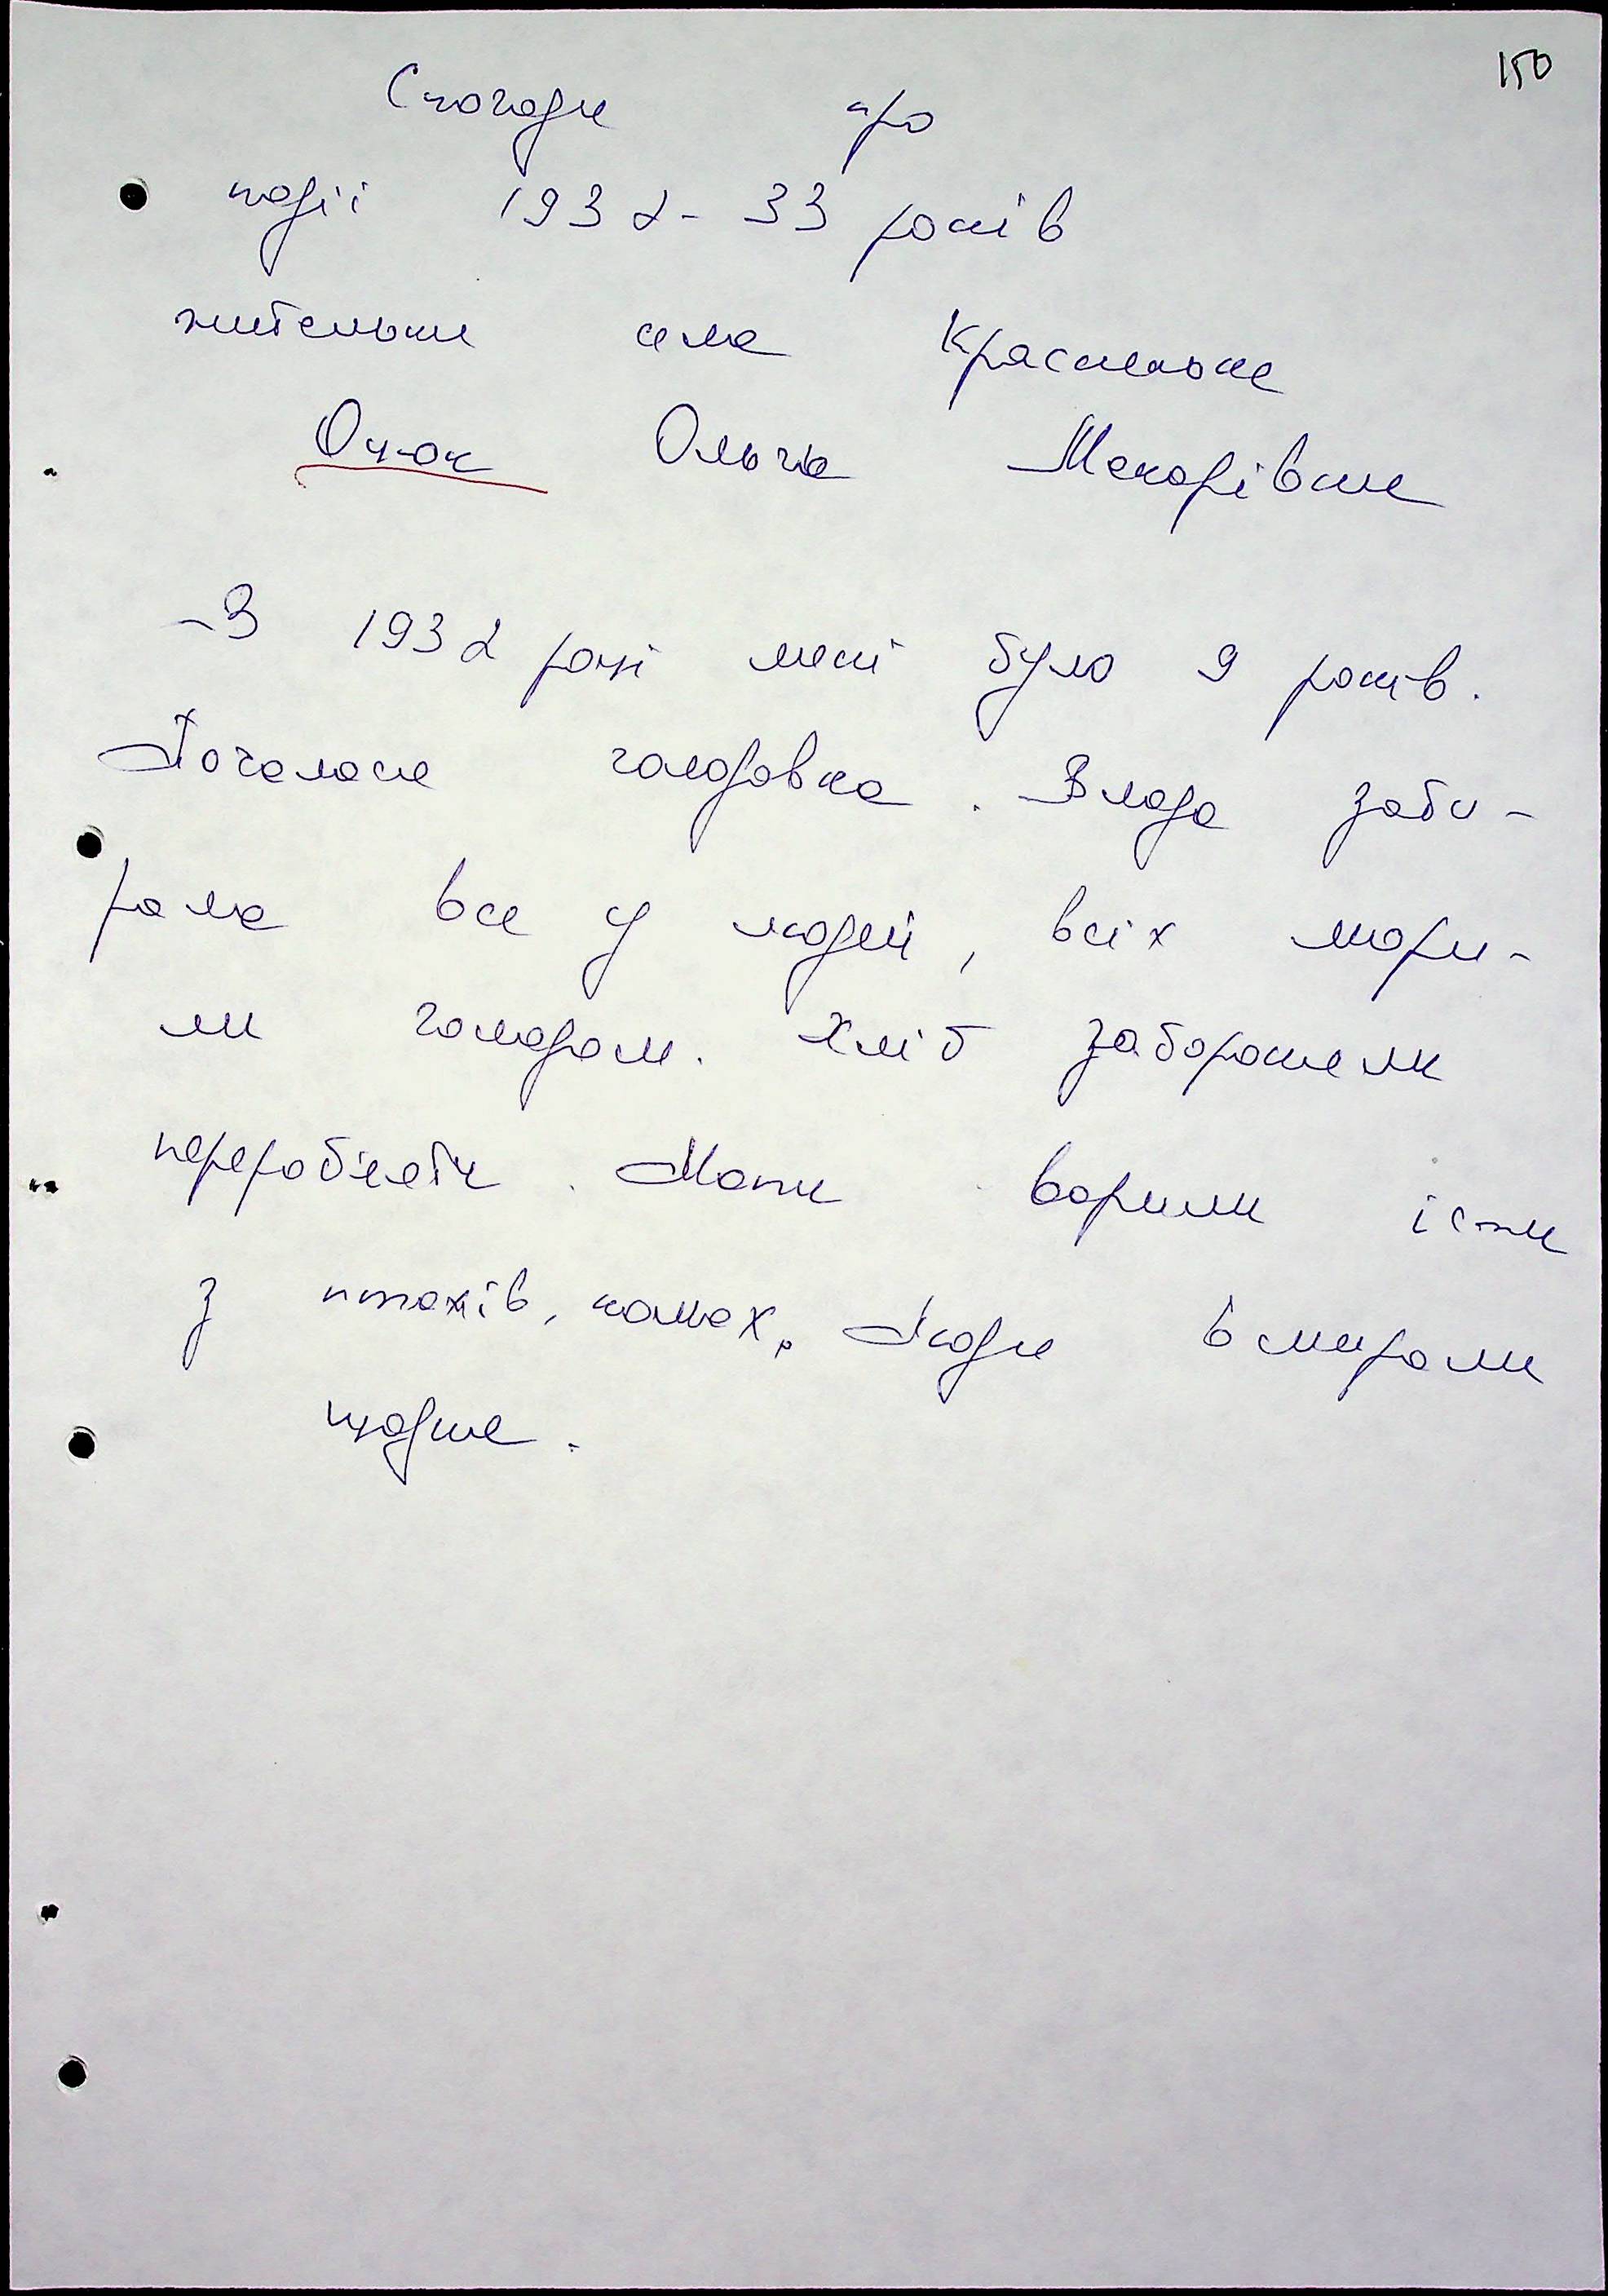 150
Спогади про
події 1932-33 років
жительки села Красненьке
Ольга Макарівна
- В 1932 році мені було 9 років.
Почалася голодовка. Влада заби-
рала все у людей, всіх мори-
ли голодом. Хліб забороняли
переробляти. Мати варили їсти
з птахів, комах. Люди вмирали
щодня.